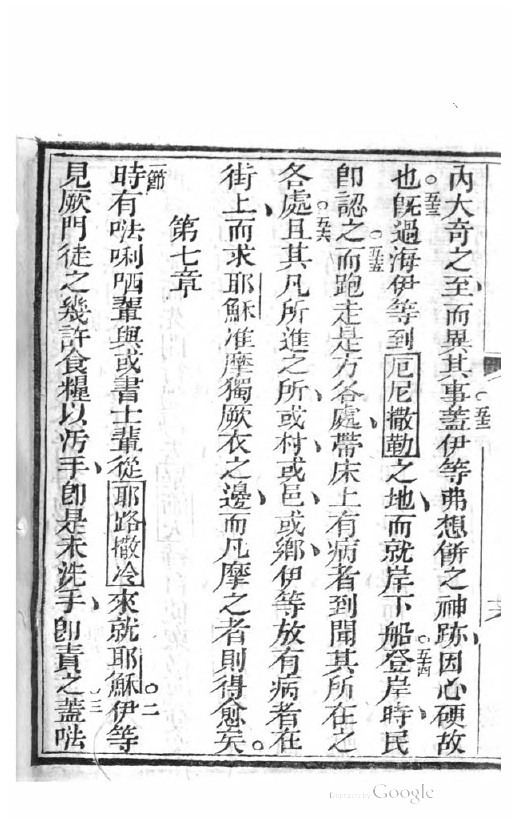 內大奇之至而異其事蓋伊等弗想餅之神跡因心硬故
也五三既過海伊等到厄尼撒勒之地而就岸下船五四登岸時民
卽認之而跑走五五是方各處帶床上有病者到聞其所在之
各處五六且其凡所進之所或村或邑或鄉伊等放有病者在
街上而求耶穌准摩獨厥衣之邊而凡摩之者則得愈矣
第七章
一節時有𠵽唎哂輩與或書士輩從耶路撒冷來就耶穌二伊等
見厥門徒之幾許食糧以污手卽是未洗手卽責之三蓋
Digitized by Google